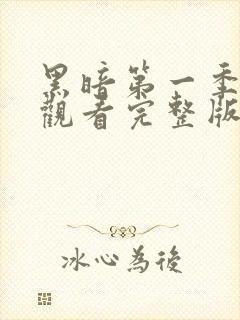 黑暗第一季
觀看完整版
冰心為後